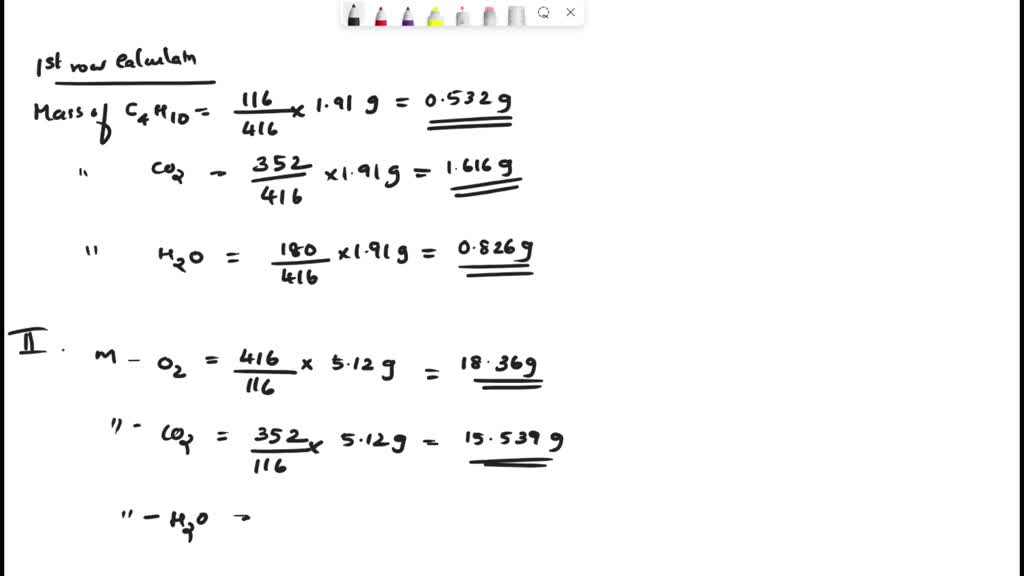 1st row Calculatn
Mass of C₄H₁₀ = 116/416 × 1.91 g = 0.532g
" CO₂ - 352/416 × 1.91g = 1.616g
" H₂O = 180/416 × 1.91g = 0.826g
II. m - O₂ = 416/116 × 5.12g = 18.36g
" - CO₂ = 352/116 × 5.12g = 15.539g
" - H₂O =